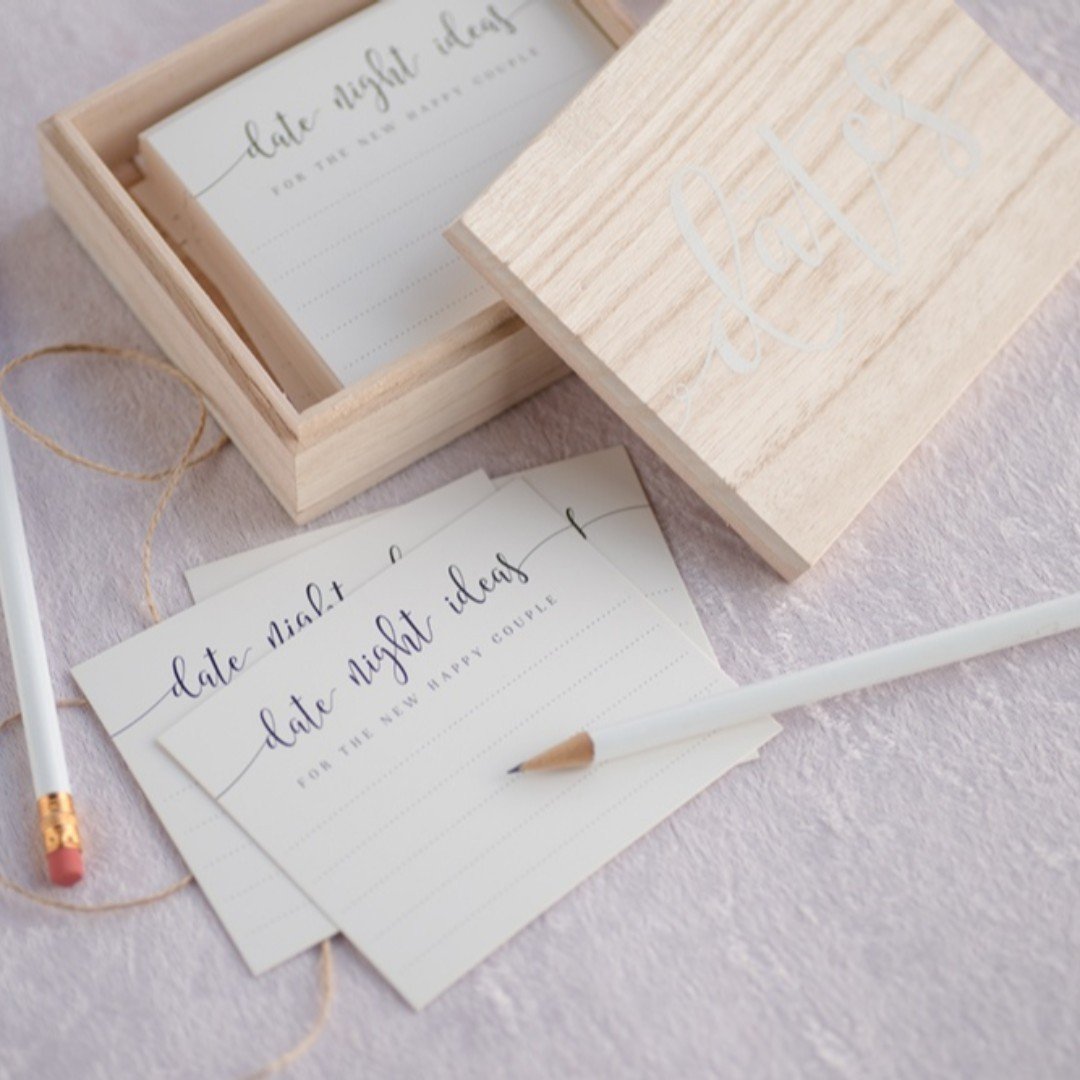 date night ideas
FOR THE NEW HAPPY COUPLE
dates
date night
date night ideas
FOR THE NEW HAPPY COUPLE